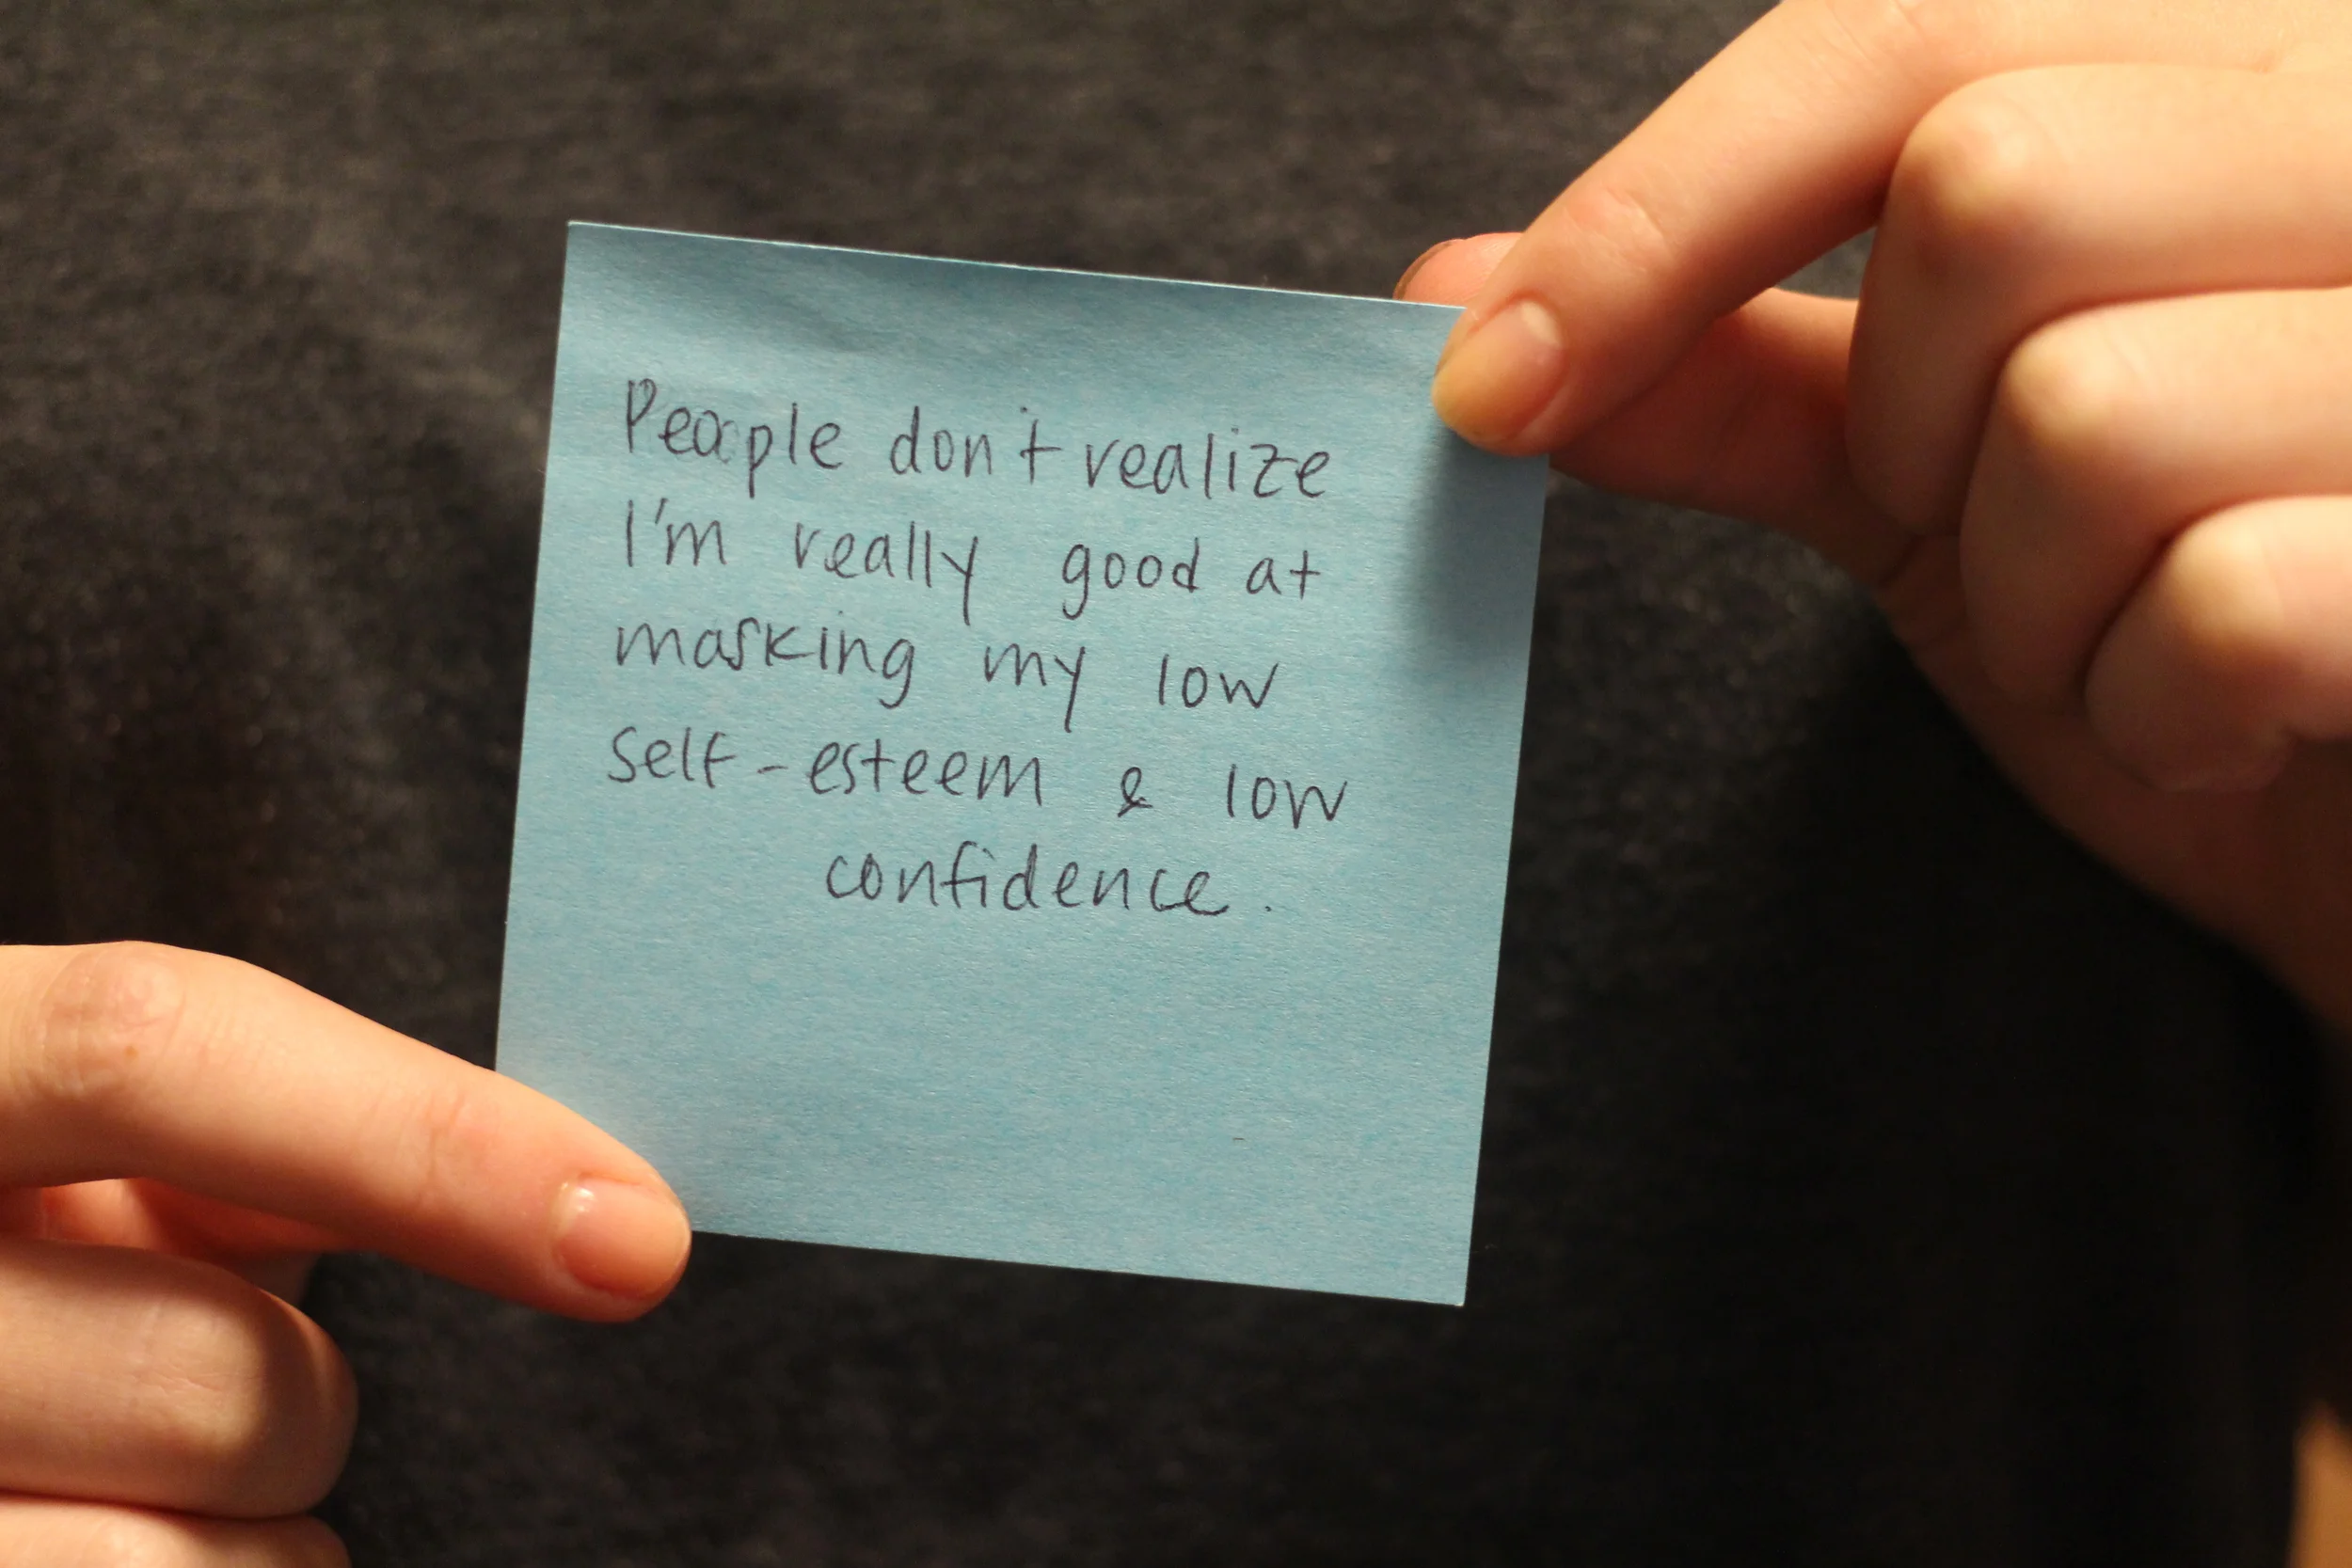 People don't realize
I'm really good at
masking my low
self-esteem & low
confidence.